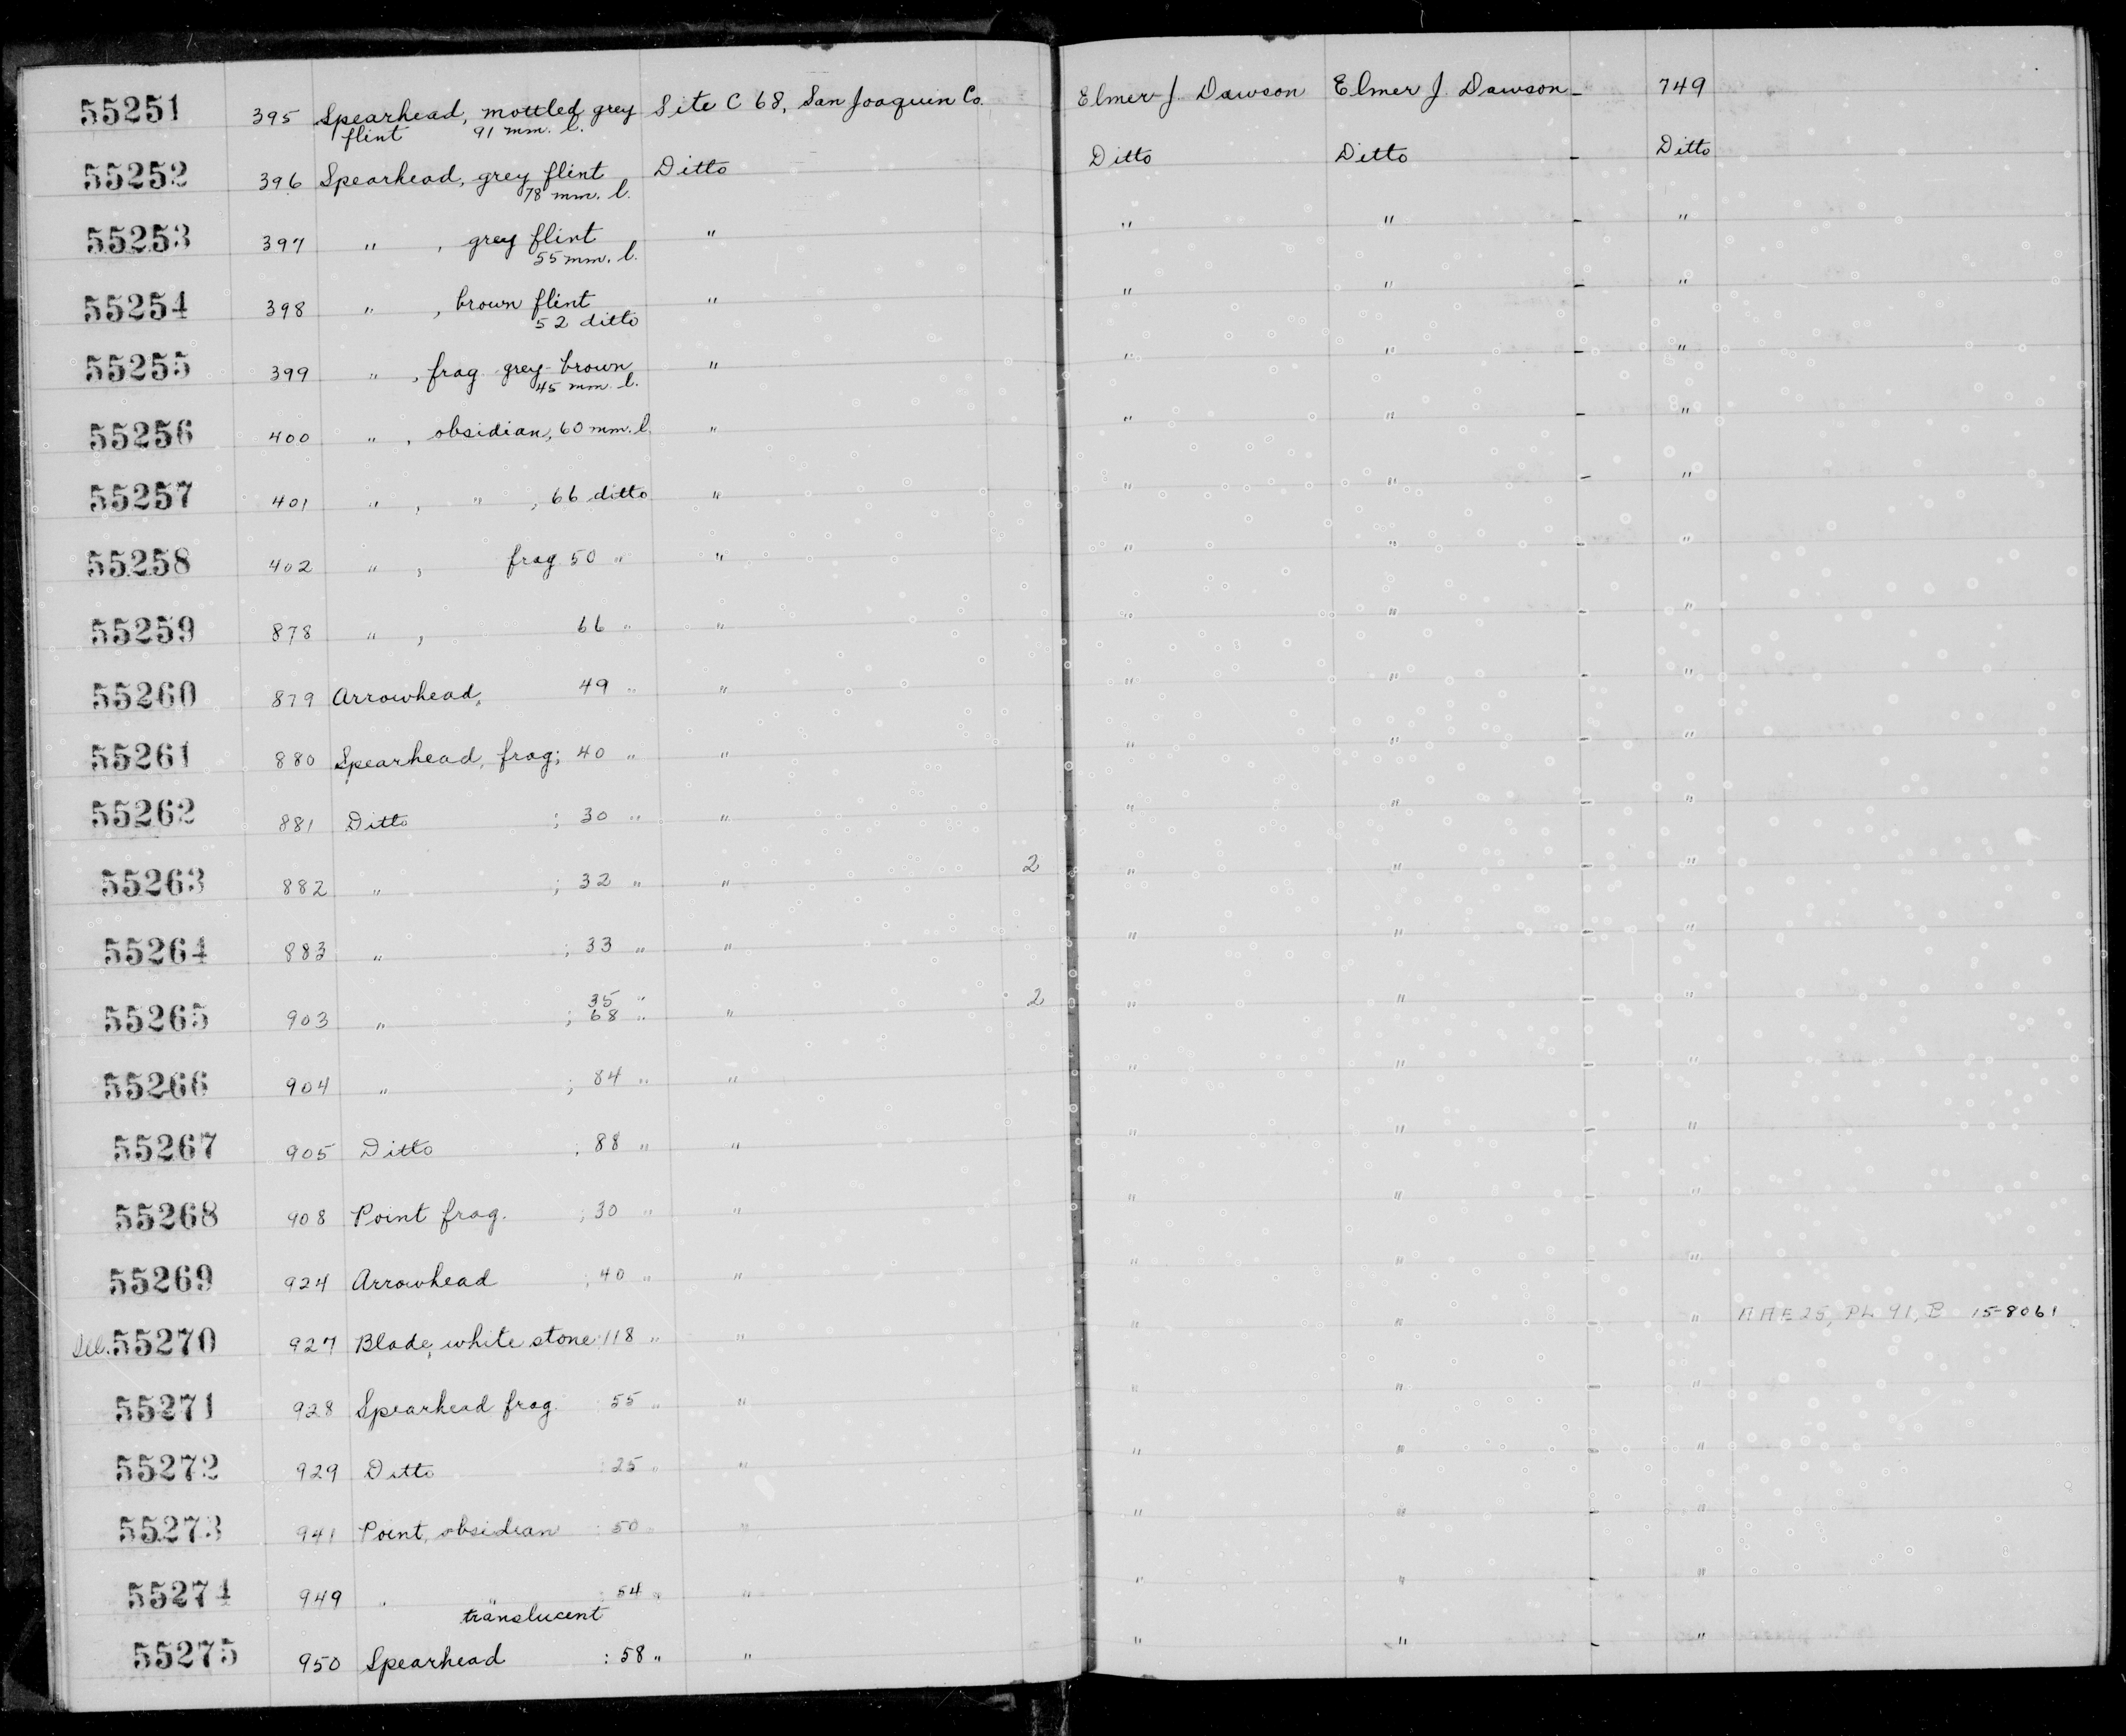 55251 395 Spearhead, mottled grey Site C 68, San Joaquin Co. Elmer J. Dawson Elmer J. Dawson - 749
flint 91 mm. l.
55252 396 Spearhead, grey flint Ditto Ditto Ditto - Ditto
78 mm. l.
55253 397 " , grey flint " " " - "
55 mm. l.
55254 398 " , brown flint " " " - "
52 ditto
55255 399 " , frag grey-brown " " " - "
45 mm. l.
55256 400 " , obsidian, 60 mm. l. " " " - "
55257 401 " , " , 66 ditto " " " - "
55258 402 " , frag 50 " " " " - "
55259 878 " , 66 " " " " - "
55260 879 Arrowhead, 49 " " " " - "
55261 880 Spearhead, frag; 40 " " " " - "
55262 881 Ditto ; 30 " " " " - "
55263 882 " ; 32 " " 2 " " - "
55264 883 " ; 33 " " " " - "
35 "
55265 903 " ; 68 " " 2 " " - "
55266 904 " ; 84 " " " " - "
55267 905 Ditto ; 88 " " " " - "
55268 908 Point frag. ; 30 " " " " - "
55269 924 Arrowhead ; 40 " " " " - "
55270 927 Blade, white stone: 118 " " " " - " 15-8061
55271 928 Spearhead frag. : 55 " " " " - "
55272 929 Ditto : 25 " " " " - "
55273 941 Point, obsidian : 50 " " " " - "
55274 949 " " : 54 " " " " - "
translucent
55275 950 Spearhead : 58 " " " " - "